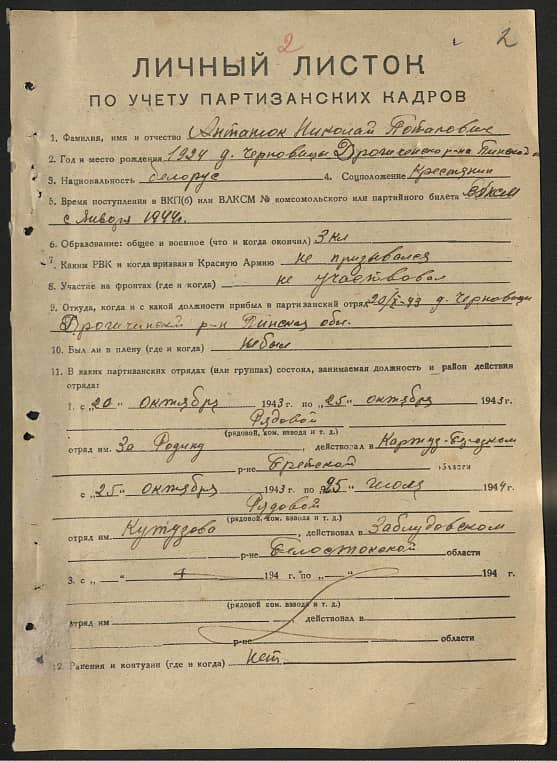 2 2
ЛИЧНЫЙ ЛИСТОК
ПО УЧЕТУ ПАРТИЗАНСКИХ КАДРОВ
1. Фамилия, имя и отчество Антанюк Николай Потапович
2. Год и место рождения 1924 д. Черновицы Дрогиченского р-на Пинской о
3. Национальность белорус 4. Соцположение Крестянин
5. Время поступления в ВКП(б) или ВЛКСМ № комсомольского или партийного билета ВЛКСМ
с Января 1944г.
6. Образование: общее и военное (что и когда окончил) 3 кл
7. Каким РВК и когда призван в Красную Армию не призывался
8. Участие на фронтах (где и когда) не участвовал
9. Откуда, когда и с какой должности прибыл в партизанский отряд 20/X-43 д. Черновицы
Дрогичинский р-н Пинская обл.
10. Был ли в плену (где и когда) небыл
11. В каких партизанских отрядах (или группах) состоял, занимаемая должность и район действия
отряда:
1. с „20" октября 1943 г. по „25" октября 1943 г.
Рядовой
(рядовой, ком. взвода и т. д.)
отряд им. За Родину , действовал в Картуз-Березком
р-не Бретской области
с „25" октября 1943 г. по „25" июля 1944 г.
Рядовой
(рядовой, ком. взвода и т. д.)
отряд им. Кутузова , действовал в Заблудовском
р-не Белостокской области
3. с „ — " 194 г. по „ — " 194 г.
(рядовой, ком. взвода и т. д.)
отряд им , действовал в
р-не области
12. Ранения и контузии (где и когда) Нет